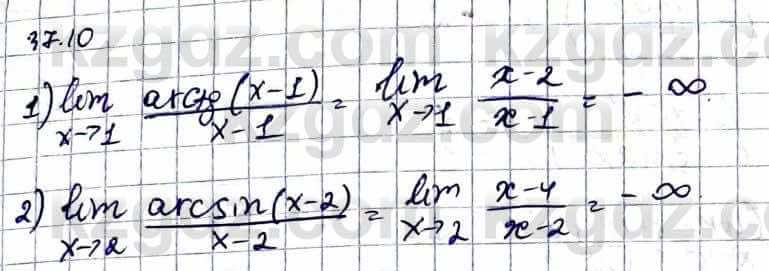 37.10
1) lim x→1 arctg(x-1)/x-1 = lim x→1 x-2/x-1 = -∞.
2) lim x→2 arcsin(x-2)/x-2 = lim x→2 x-4/x-2 = -∞.
kzgdz.com